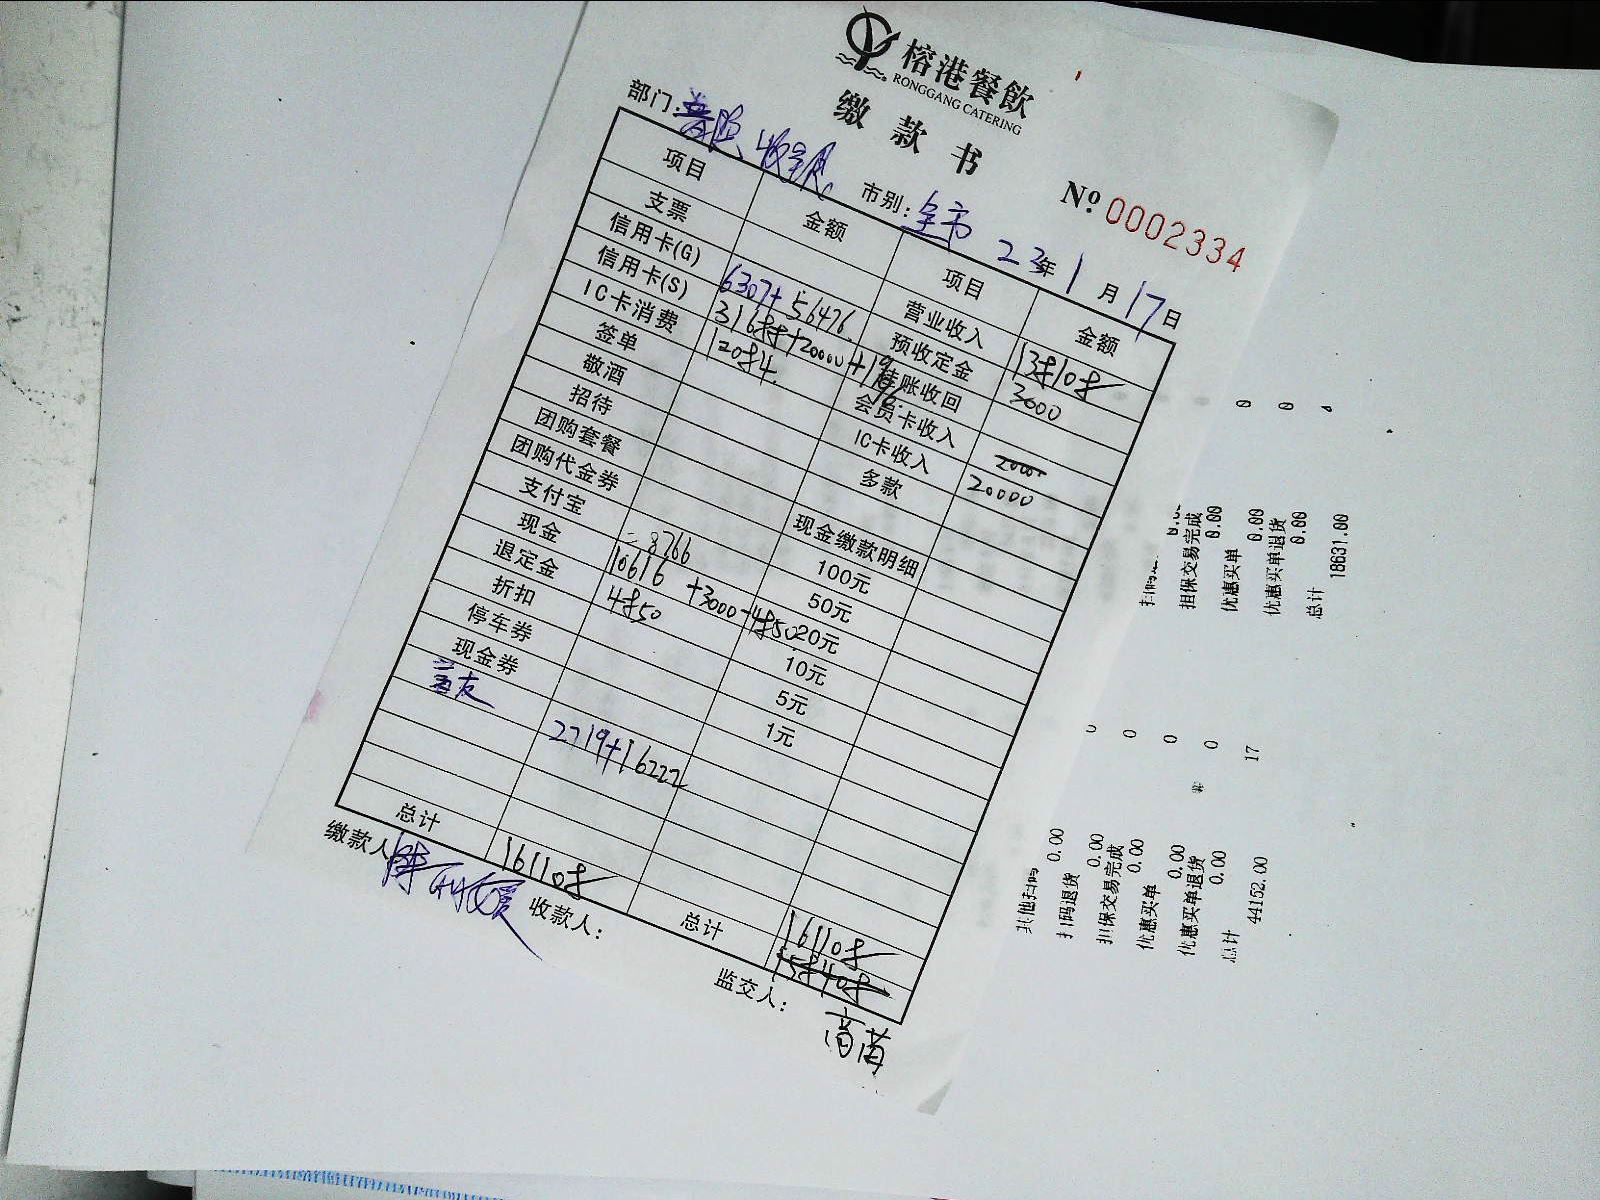 榕港餐飲
RONGGANG CATERING
缴款书
№ 0002334
部门: 收营员 市别: 全市 23年1月17日
项目 金额 项目 金额
支票 营业收入 138108
信用卡(G) 6307+56476 预收定金 3000
信用卡(S) 31688+20000+1996 挂账收回
IC卡消费 12084 会员卡收入
签单 IC卡收入 20000
敬酒 多款
招待
团购套餐 现金缴款明细
团购代金券 100元
支付宝 50元
现金 =8766
10616+3000-4850 20元
退定金 4850 10元
折扣 5元
停车券 1元
现金券
2719+16222
总计 161108 总计 161108
158108
缴款人: 收款人: 监交人:
0 0
扫码
担保交易完成 0.00
优惠买单 0.00
优惠买单退货 0.00
总计 18631.00
0 0 0 0 17
其他扫码 0.00
扫码退货 0.00
担保交易完成 0.00
优惠买单 0.00
优惠买单退货 0.00
总计 44152.00